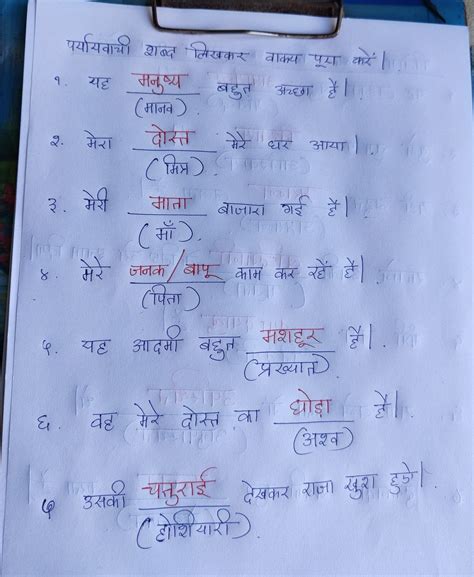 पर्यायवाची शब्द लिखकर वाक्य पूरा करें।
१. यह मनुष्य बहुत अच्छा है।
(मानव)
२. मेरा दोस्त मेरे घर आया।
(मित्र)
३. मेरी माता बाजारा गई है।
(माँ)
४. मेरे जनक/बापू काम कर रहें हैं।
(पिता)
५. यह आदमी बहुत मशहूर है।
(प्रख्यात)
६. वह मेरे दोस्त का घोड़ा है।
(अश्व)
७ उसकी चतुराई देखकर राजा खुश हुऐ।
(होशियारी)